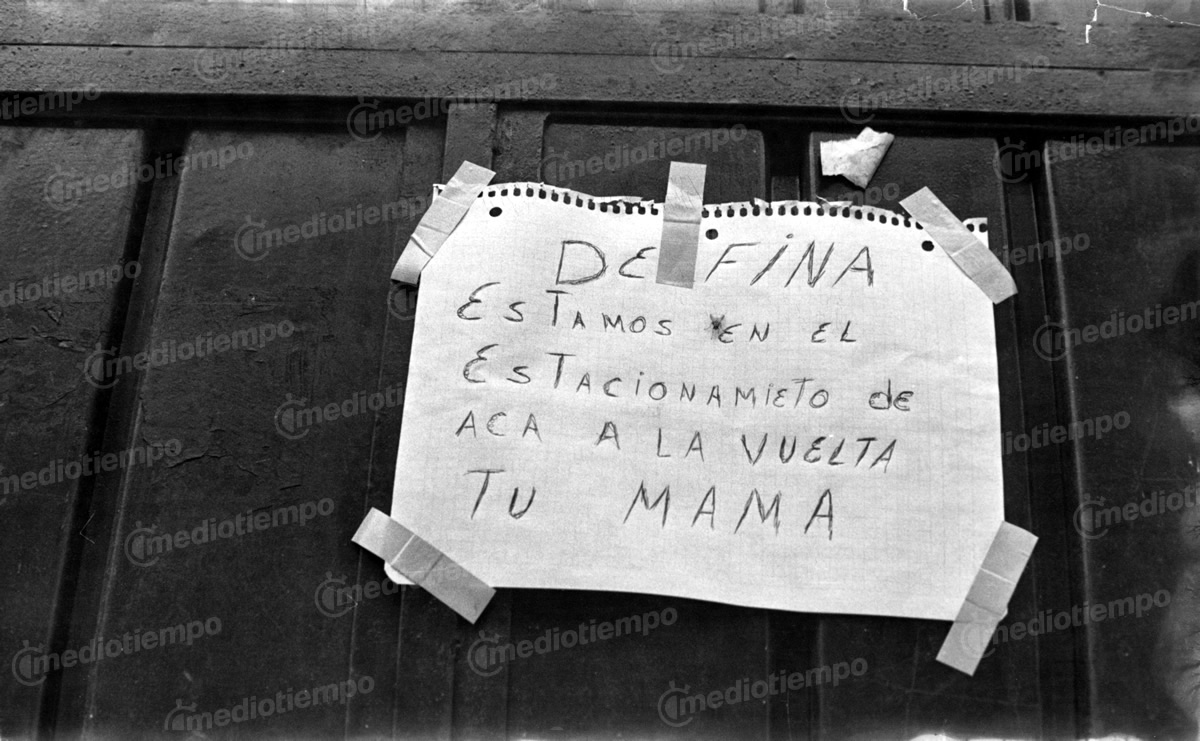 DE FINA
ESTAMOS EN EL
ESTACIONAMIETO de
ACA A LA VUELTA
TU MAMA
mediotiempo